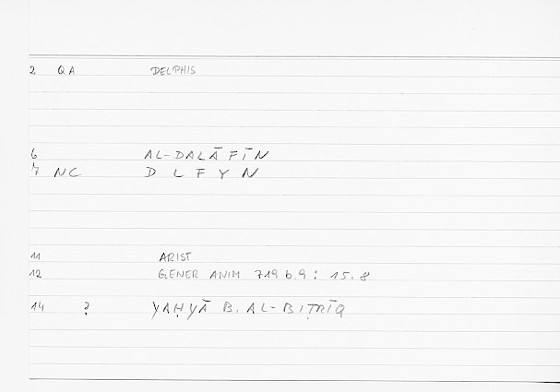 2 QA DELPHIS
6 AL-DALĀFĪN
7 NC D L F Y N
11 ARIST
12 GENER ANIM 719 b.9 : 15.8
14 ? YAḤYĀ B. AL-BIṬRĪQ